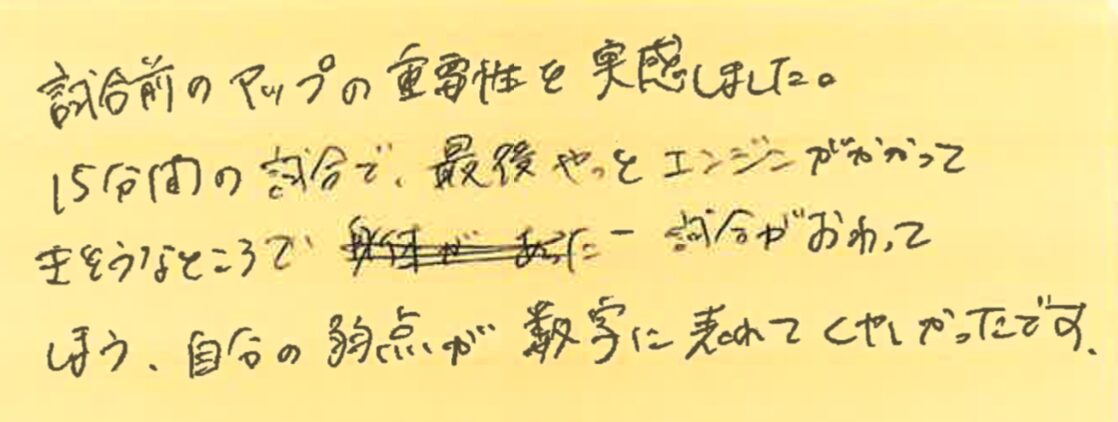 試合前のアップの重要性を実感しました。
15分間の試合で、最後やっとエンジンがかかって
きそうなところで 試合がおわって
しまう、自分の弱点が数字に表れてくやしかったです.